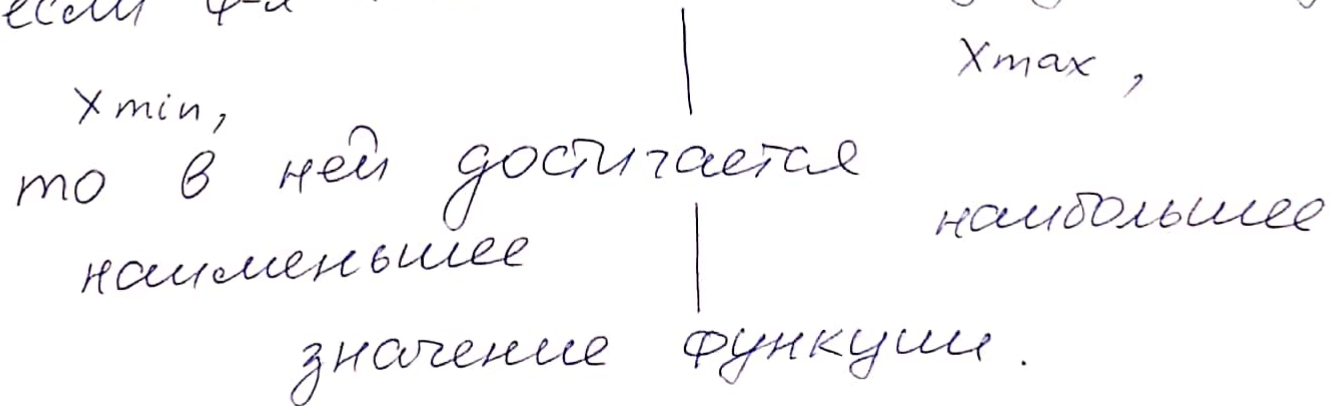 если ф-я
Xmax,
Xmin,
то в ней достигается
наибольшее
наименьшее
значение функции.